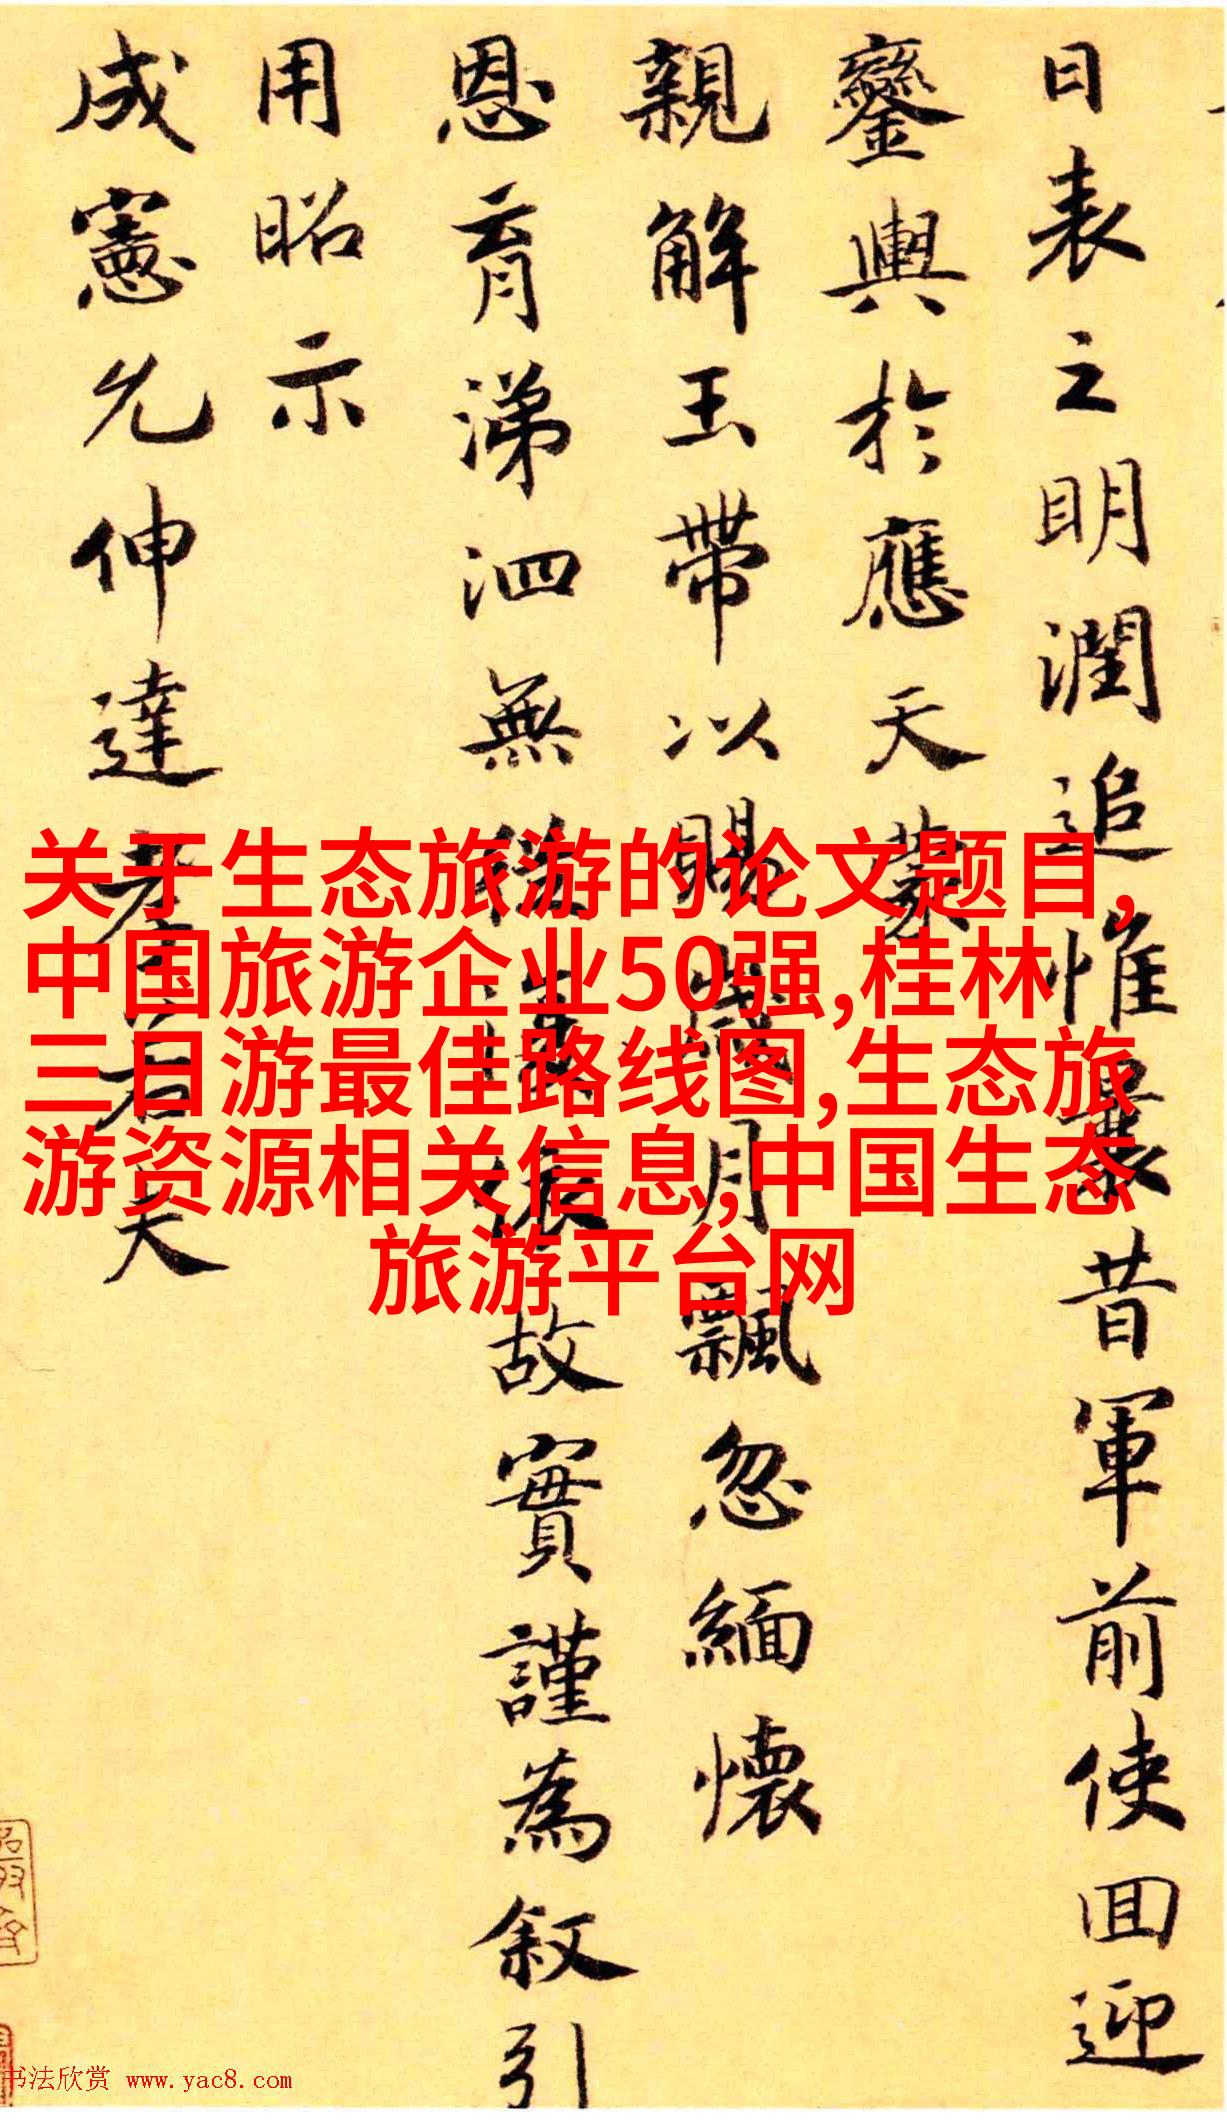 日表之明潤追惟曩昔軍前使囬迎
鑾輿於應天蒙
親解玉帶以賜歲月飄忽緬懷
恩育涕泗無從故實謹為叙引
用昭示
成憲允伸達孝若夫
关于生态旅游的论文题目,
中国旅游企业50强,桂林
三日游最佳路线图,生态旅
游资源相关信息,中国生态
旅游平台网
书法欣赏 www.yac8.com